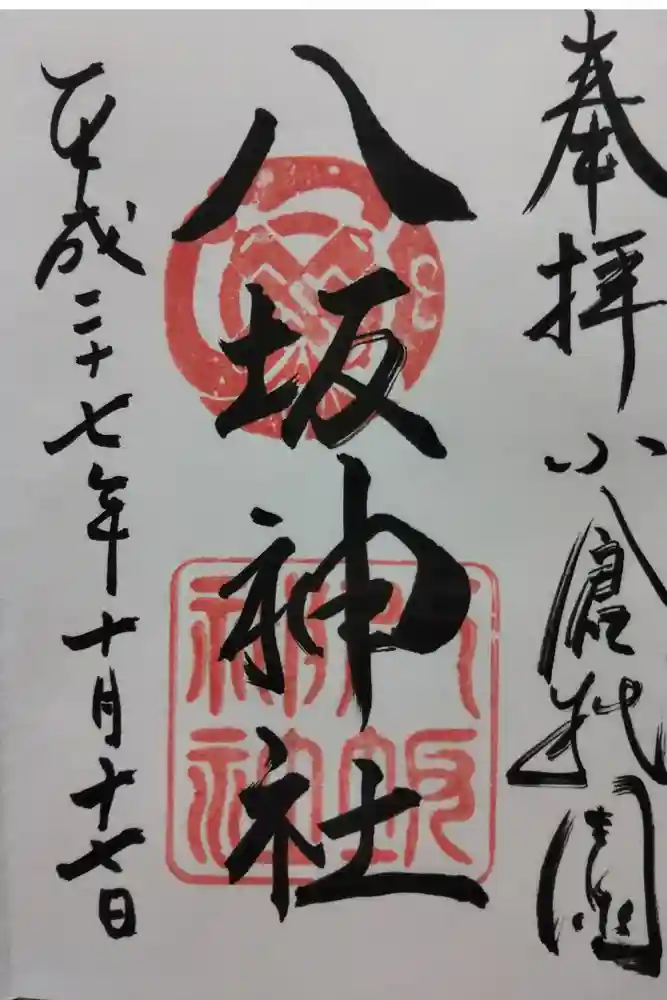 奉拝 小倉祇園
八坂神社
平成二十七年十月十七日
八坂神社